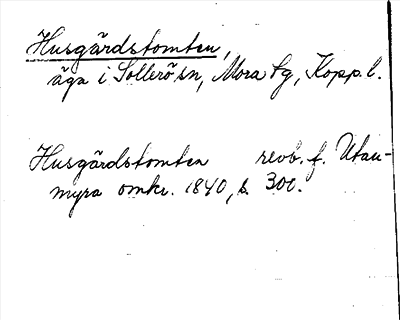 Husgårdstomten,
äga i Sollerö sn, Mora tg, Kopp. l.
Husgårdstomten revb. f. Utan-
myra omkr. 1840, s. 300.